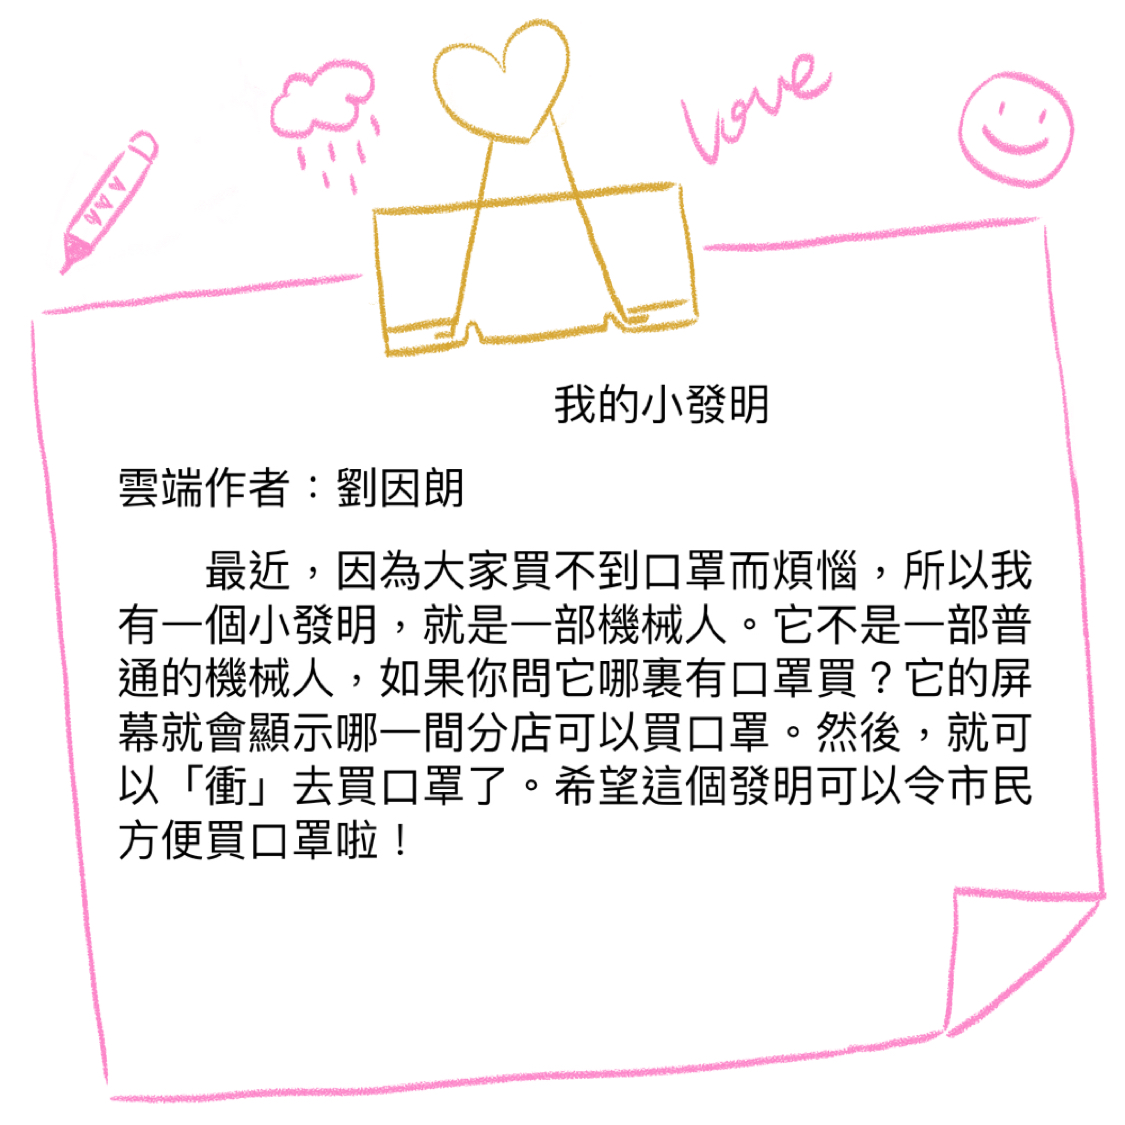 Love
我的小發明
雲端作者：劉因朗
最近，因為大家買不到口罩而煩惱，所以我
有一個小發明，就是一部機械人。它不是一部普
通的機械人，如果你問它哪裏有口罩買？它的屏
幕就會顯示哪一間分店可以買口罩。然後，就可
以「衝」去買口罩了。希望這個發明可以令市民
方便買口罩啦！